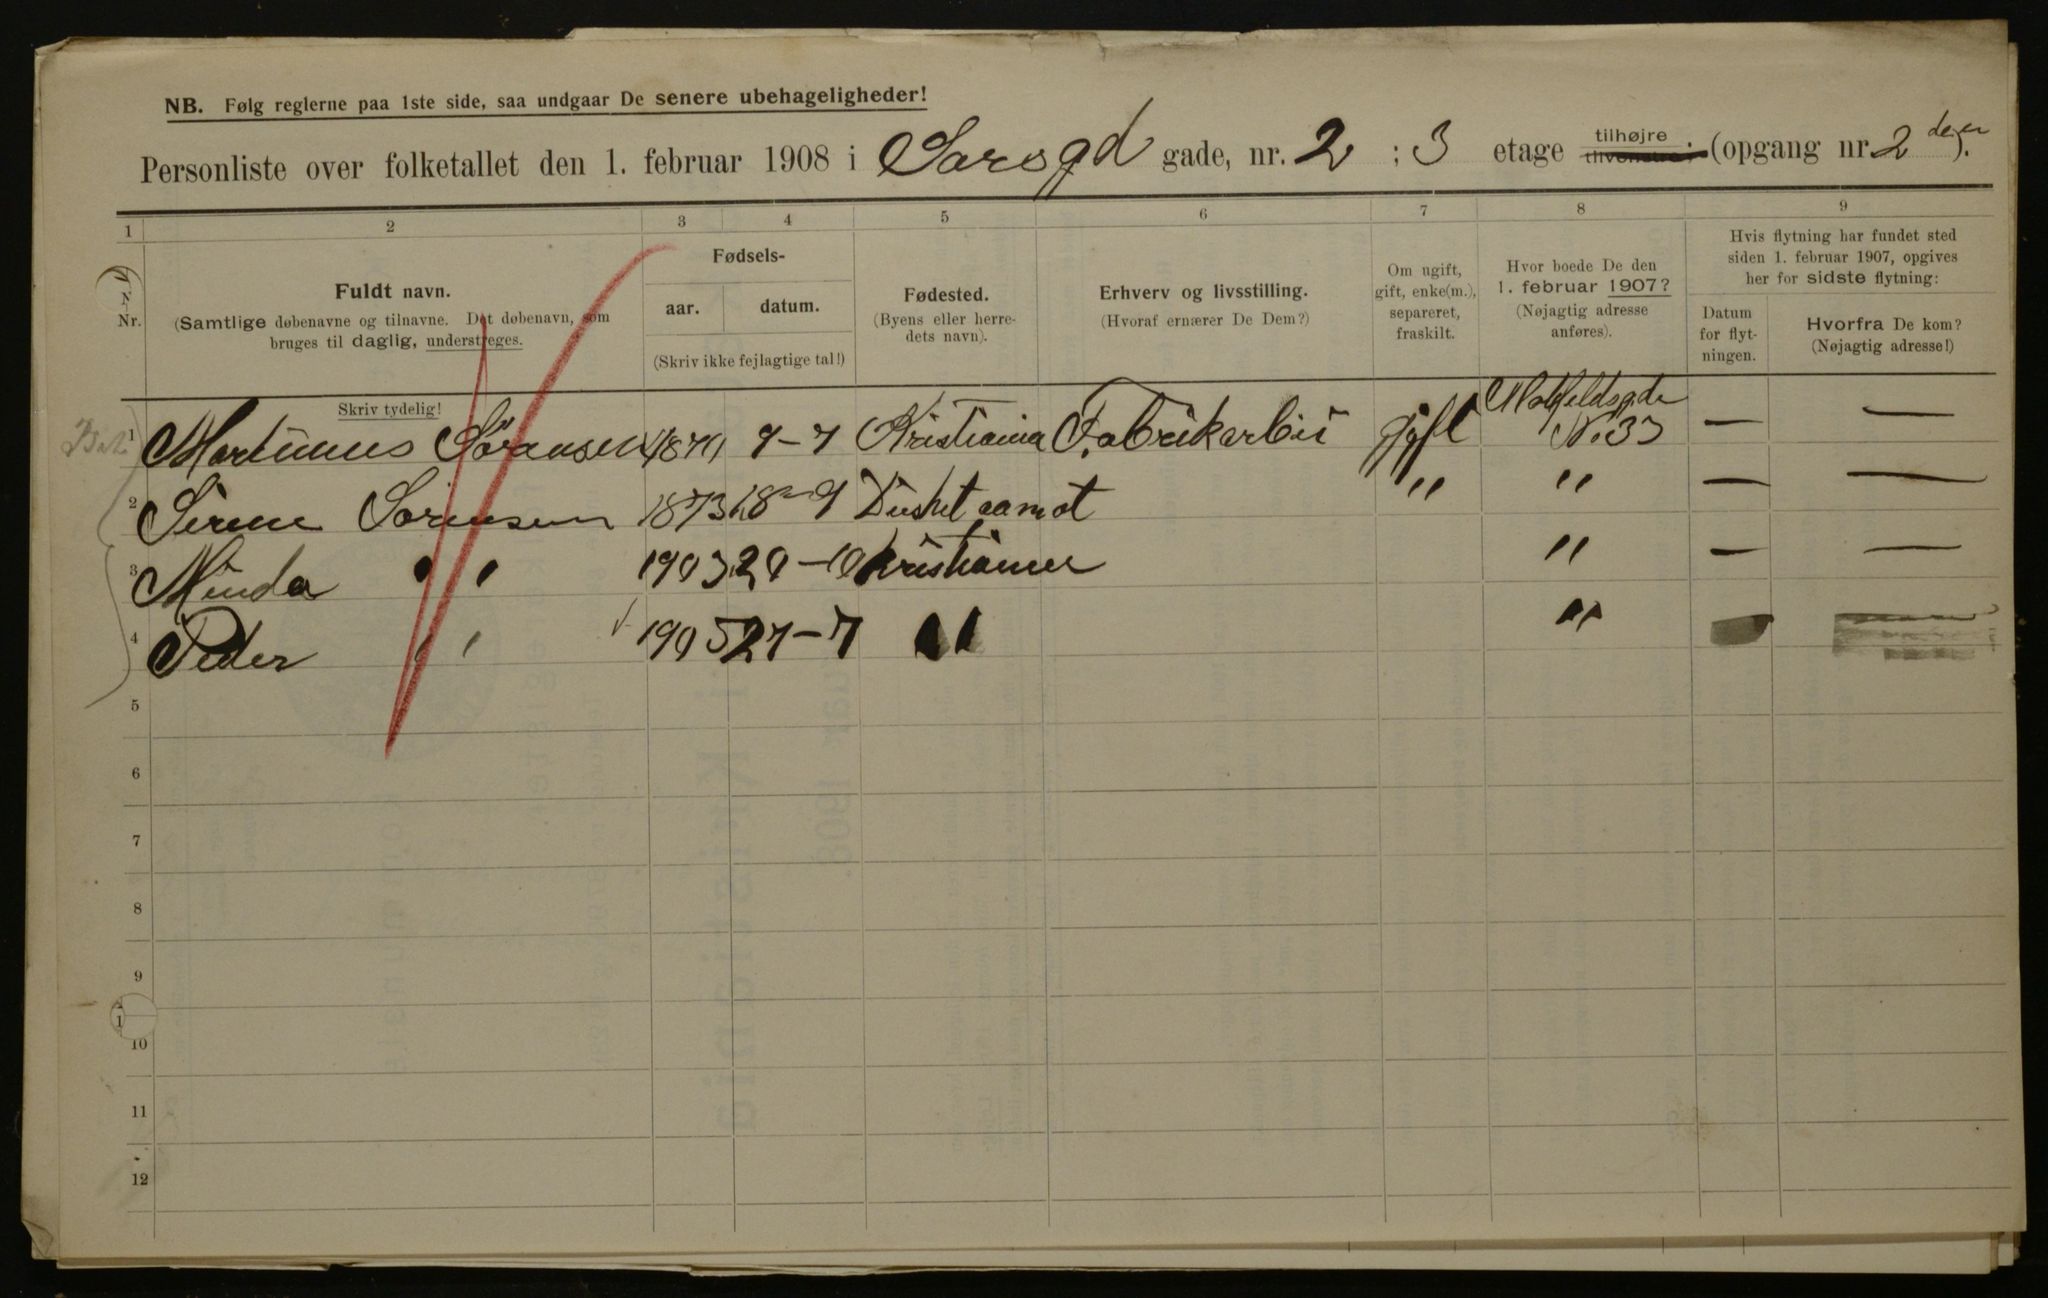 NB. Følg reglerne paa 1ste side, saa undgaar De senere ubehageligheder!
Personliste over folketallet den 1. februar 1908 i Sarsgd gade, nr. 2 ; 3 etage tilhøjre tilvenstre (opgang nr. 2 ).
1 2 3 4 5 6 7 8 9
Nr.
Fuldt navn.
(Samtlige døbenavne og tilnavne. Det døbenavn, som
bruges til daglig, understreges.
Skriv tydelig!
Fødsels-
aar. datum.
(Skriv ikke fejlagtige tal!)
Fødested.
(Byens eller herre-
dets navn).
Erhverv og livsstilling.
(Hvoraf ernærer De Dem?)
Om ugift,
gift, enke(m.),
separeret,
fraskilt.
Hvor boede De den
1. februar 1907?
(Nøjagtig adresse
anføres).
Hvis flytning har fundet sted
siden 1. februar 1907, opgives
her for sidste flytning:
Datum
for flyt-
ningen.
Hvorfra De kom?
(Nøjagtig adresse!)
1 Martinius Sörensen 1870 9-7 Kristiania Fabrikarbei gift No 33 — —
2 Serine Sorensen 1873 18-9 " " — —
3 Minda " 1903 29-10 Kristiania " — —
4 Peder " 1905 27-7 " "
5
6
7
8
9
10
11
12